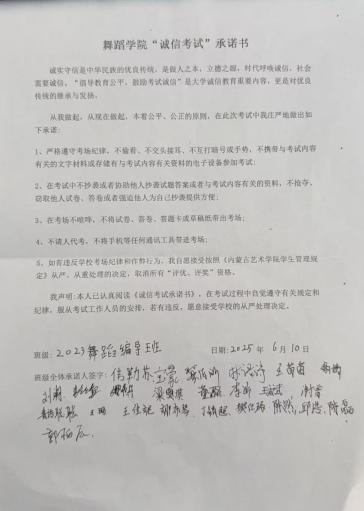 舞蹈学院“诚信考试”承诺书
诚实守信是中华民族的优良传统，是做人之本，立德之源，时代呼唤诚信，社会
需要诚信，“倡导教育公平，鼓励考试诚信”是大学诚信教育重要内容，更是对优良
传统的继承与发扬。
从我做起，从现在做起，本着公平、公正的原则，在此次考试中我庄严地做出如
下承诺：
1、严格遵守考场纪律，不偷看、不交头接耳、不互打暗号或手势，不携带与考试内容
有关的文字材料或存储有与考试内容有关资料的电子设备参加考试；
2、在考试中不抄袭或者协助他人抄袭试题答案或者与考试内容有关的资料，不抢夺、
窃取他人试卷、答卷或者强迫他人为自己抄袭提供方便；
3、在考场不喧哗，不将试卷、答卷、答题卡或草稿纸带出考场；
4、不请人代考，不将手机等任何通讯工具带进考场；
5、如有违反学校考场纪律和作弊行为，我自愿接受按照《内蒙古艺术学院学生管理规
定》从严、从重处理的决定，取消所有“评优、评奖”资格。
我声明：本人已认真阅读《诚信考试承诺书》，在考试过程中自觉遵守有关规定和
纪律，服从考试工作人员的安排，若有违反，愿意接受学校的从严处理决定。
班级：2023舞蹈编导班 日期：2025年6月10日
班级全体承诺人签字：